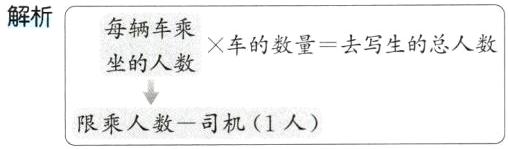 解析
每辆车乘
坐的人数
×车的数量=去写生的总人数
限乘人数-司机(1人)